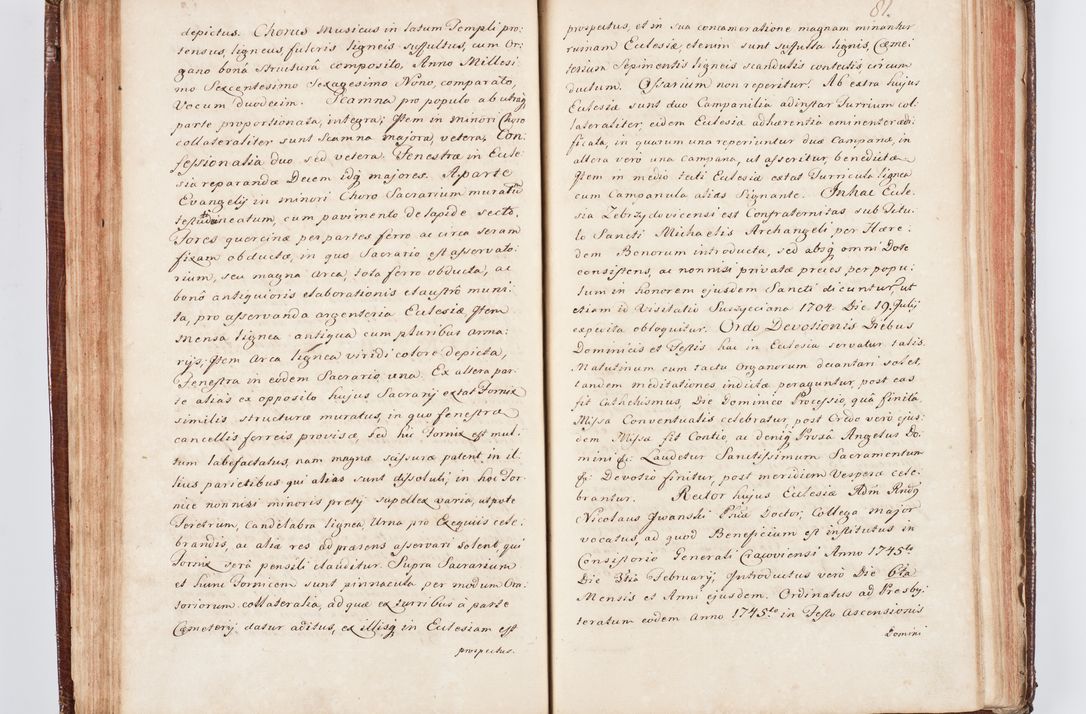 depictus. Chorus Musicus in latum Templi pro:
tensus, ligneus, fulcris ligneis suffultus, cum Or:
gano bonâ structurâ composito, Anno Millesi:
mo Sexcentesimo Sexagesimo Nono, comparato,
Vocum duodecim. Scamna pro populo ab utraq
parte proportionata, integra; Item in minori Choro
collateraliter sunt Scamna majora, vetera, Con:
fessionalia duo sed vetera. Fenestræ in Eccle:
sia reparandæ Decem idq majores. A parte
Evangelij in minori Choro Sacrarium muratu
testudineatum, cum pavimento de lapide secto,
Fores quercinæ per partes ferro ac circa seram
fixam obductæ, in quo Sacrario est asservato:
rium, seu magna Arca, tota ferro obducta, ac
bonâ antiquioris elaborationis claustrô muni:
ta, pro asservanda argenteria Ecclesiæ. Item
mensa lignea antiqua cum pluribus arma:
rijs; Item Arca lignea viridi colore depicta,
Fenestra in eodem Sacrario una. Ex altera par:
te alias ex opposito hujus Sacrarij extat Fornix
similis structuræ muratus, in quo fenestræ
cancellis ferreis provisæ, sed hic Fornix est mul:
tum labefactatus, nam magnæ scissuræ patent in il:
lius parietibus qui alias sunt dissoluti, in hoc For:
nice nonnisi minoris pretij supellex varia, utpote
Feretrum, Candelabra lignea, Urna pro Exequiis cele:
brandis, ac aliæ res ad præsens asservari solent, qui
Fornix serâ pensili clauditur. Supra Sacrarium
et hunc Fornicem sunt pinnacula per modum Ora:
toriorum collateralia, ad quæ ex turribus à parte
Cæmeterij datur aditus, ex illisq in Ecclesiam est
prospectus.
81.
prospectus, et in sua concameratione magnam minantur
ruinam Ecclesiæ, etenim sunt suffulta lignis, Cæme:
terium Sepimentis ligneis scandulis contectis circum
ductum. Ossarium non reperitur. Ab extra hujus
Ecclesiæ sunt duo Campanilia ad instar Turrium col:
lateraliter, eidem Ecclesiæ adhærentia eminenter ædi:
ficata, in quarum una reperiuntur duæ Campanæ, in
altera verò una campana, ut asseritur, benedictæ
Item in medio tecti Ecclesiæ extat Turricula lignea
cum Campanula alias Signante. In hac Eccle:
sia Zebrzydovicensi est Confraternitas sub Titu:
lo Sancti Michaelis Archangeli per Hære:
dem Bonorum introducta, sed absq omni Dote
consistens, ac nonnisi privatæ preces per popu:
lum in honorem ejusdem Sancti dicuntur, ut
etiam id Visitatio Surzyciana 1704 Die 19. Julij
expedita obloquitur. Ordo Devotionis Diebus
Dominicis et Festis hac in Ecclesia servatur talis.
Matutinum cum tactu Organorum decantari solet,
tandem meditationes indictæ peraguntur, post eas
fit Cathehismus, Die Dominico Processio, quâ finitâ
Missa Conventualis celebratur, post Credo verò ejus:
dem Missæ fit Contio, ac deniq Prosa Angelus Do:
mini &: Laudetur Sanctissimum Sacramentum
&: Devotio finitur, post meridiem Vesperæ cele:
brantur. Rector hujus Ecclesiæ Adm Rndg
Nicolaus Iwanski Phiæ Doctor, Collega major
vocatus, ad quod Beneficium est institutus in
Consistorio Generali Cracoviensi Anno 1745to
Die 3tia Februarij, Introductus verò Die 6ta
Mensis et Anni ejusdem. Ordinatus ad Presby:
teratum eodem Anno 1745to in Festo Ascensionis
Domini